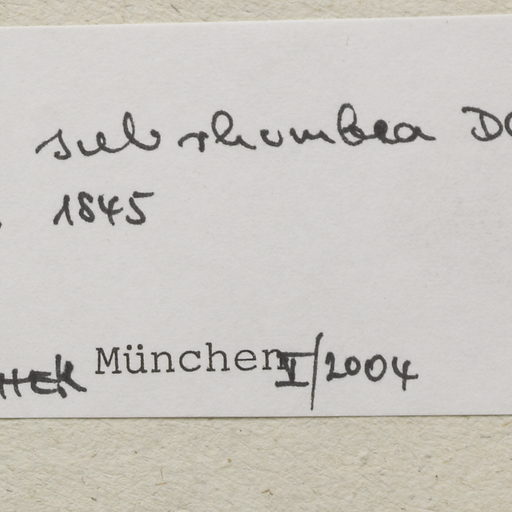 subrhombea DC
1845
HEK München V/2004